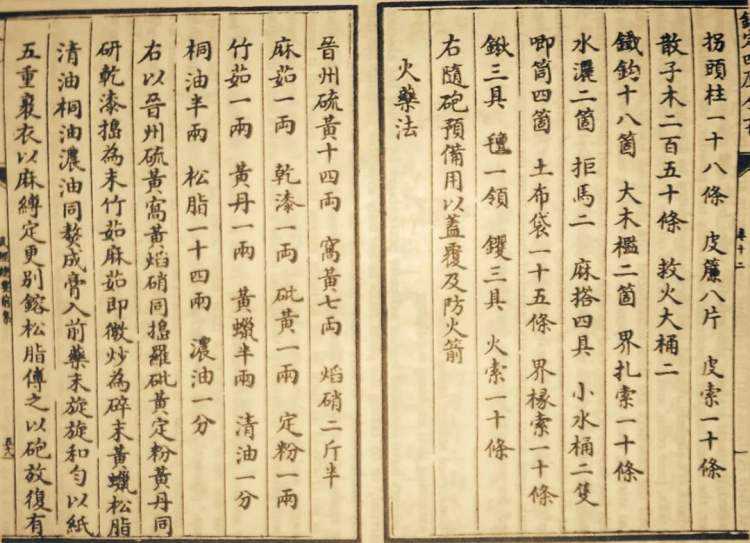 欽定四庫全書
卷十二
拐頭柱一十八條　皮簾八片　皮索一十條
散子木二百五十條　救火大桶二
鐵鈎十八箇　大木檻二箇　界扎索一十條
水濃二箇　拒馬二　麻搭四具　小水桶二隻
唧筒四箇　土布袋一十五條　界椽索一十條
鍬三具　氊一領　钁三具　火索一十條
右隨砲預備用以蓋覆及防火箭
火藥法
晉州硫黃十四兩　窩黃七兩　焰硝二斤半
麻茹一兩　乾漆一兩　砒黃一兩　定粉一兩
竹茹一兩　黃丹一兩　黃蠟半兩　清油一分
桐油半兩　松脂一十四兩　濃油一分
右以晉州硫黃窩黃焰硝同搗羅砒黃定粉黃丹同
研乾漆搗為末竹茹麻茹即微炒為碎末黃蠟松脂
清油桐油濃油同熬成膏入前藥末旋旋和勻以紙
五重裹衣以麻縛定更别鎔松脂傅之以砲放復有